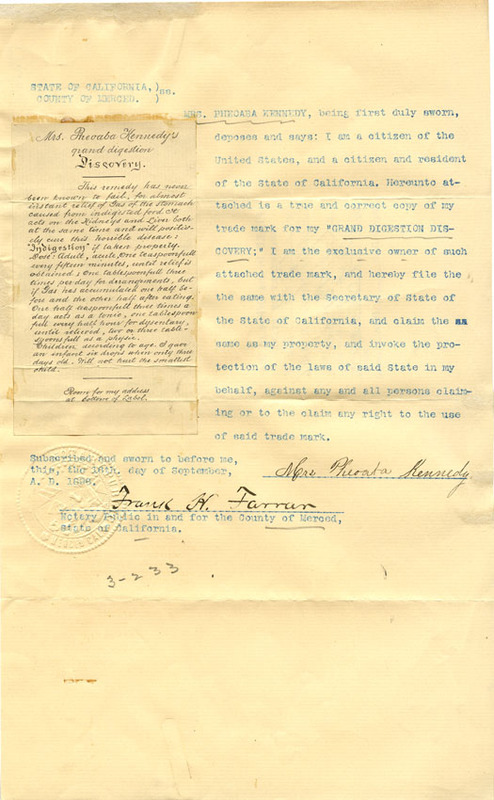 STATE OF CALIFORNIA, )
COUNTY OF MERCED. ) ss.
MRS. PHEOABA KENNEDY, being first duly sworn,
deposes and says: I am a citizen of the
United States, and a citizen and resident
of the State of California. Hereunto at-
tached is a true and correct copy of my
trade mark for my "GRAND DIGESTION DIS-
COVERY;" I am the exclusive owner of such
attached trade mark, and hereby file the
the same with the Secretary of State of
the State of California, and claim the
same as my property, and invoke the pro-
tection of the laws of said State in my
behalf, against any and all persons claim-
ing or to the claim any right to the use
of said trade mark.
Mrs. Pheoaba Kennedy's
grand digestion
Discovery.
This remedy has never
been known to fail, for almost
instant relief of Gas of the stomach
caused from indigested food. It
acts on the Kidneys and Liver both
at the same time and will positiv-
ely cure this horrible disease:
"Indigestion" if taken properly.
Dose: Adult, acute, One teaspoonfull
every fifteen minutes, until relief is
obtained; One tablespoonfull three
times per day for derangements, but
if Gas has accumulated one half be-
fore and the other half after eating.
One half teaspoonfull three times a
day acts as a tonic, one tablespoon
full every half hour for dysentary,
until relieved, two or three table-
spoonsfull as a physic.
Children according to age. I gave
an infant six drops when only three
days old. Will not hurt the smallest
child.
Room for my address
at bottom of Label.
Subscribed and sworn to before me,
this, the day of September,
A. D.
Mrs Pheoaba Kennedy
Frank H. Farrar
Notary Public in and for the County of Merced,
State of California.
3-233